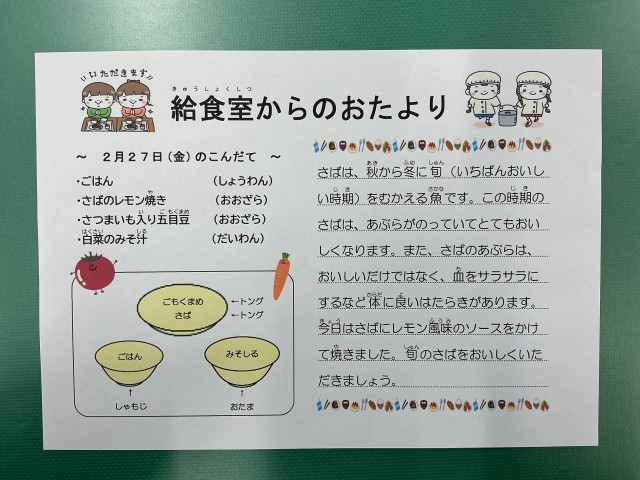 いただきます
給食室からのおたより
きゅうしょくしつ
～ 2月27日(金)のこんだて ～
・ごはん (しょうわん)
・さばのレモン焼き (おおざら)
・さつまいも入り五目豆 (おおざら)
・白菜のみそ汁 (だいわん)
ごもくまめ ←トング
さば ←トング
ごはん
みそしる
↑
↑
しゃもじ
おたま
さばは、秋から冬に旬(いちばんおいし
い時期)をむかえる魚です。この時期の
さばは、あぶらがのっていてとてもおい
しくなります。また、さばのあぶらは、
おいしいだけではなく、血をサラサラに
するなど体に良いはたらきがあります。
今日はさばにレモン風味のソースをかけ
て焼きました。旬のさばをおいしくいた
だきましょう。